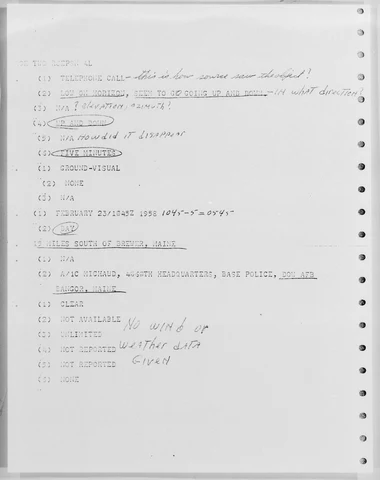 (1) TELEPHONE CALL - this is how source saw the object!
(2) LOW ON HORIZON, SEEN TO BE GOING UP AND DOWN. - IN what direction!
(3) N/A ? elevation, azimuth!
(4) UP AND DOWN
(5) N/A HOW did IT DISAPPEAR
(6) FIVE MINUTES
(1) GROUND-VISUAL
(2) NONE
(3) N/A
(1) FEBRUARY 23/1045Z 1958 1045-5=0545
(2) DAY
15 MILES SOUTH OF BREWER, MAINE
(1) N/A
(2) A/1C MICHAUD, HEADQUARTERS, BASE POLICE, DOW AFB
BANGOR, MAINE
(1) CLEAR
(2) NOT AVAILABLE
(3) UNLIMITED No WIND or
(4) NOT REPORTED weather data
(5) NOT REPORTED GIVEN
(6) NONE